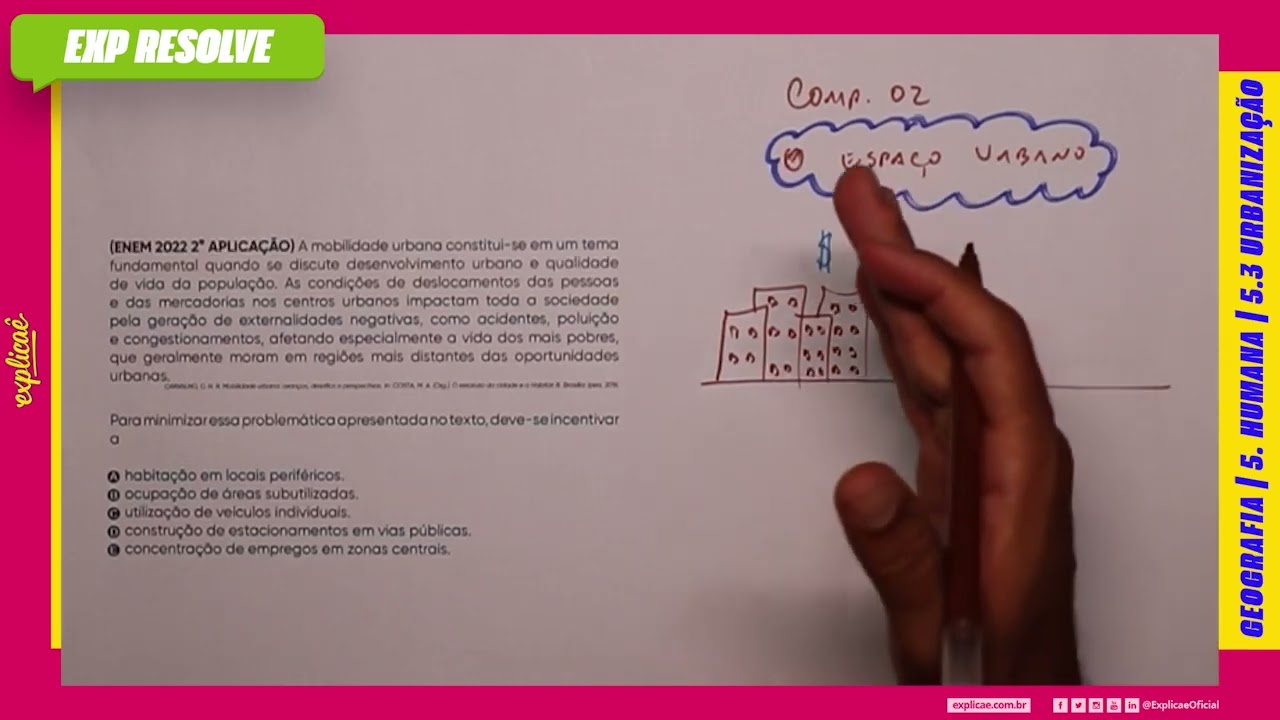 EXP RESOLVE
explicaê
Comp. 02
ESPAÇO URBANO
$
(ENEM 2022 2ª APLICAÇÃO) A mobilidade urbana constitui-se em um tema
fundamental quando se discute desenvolvimento urbano e qualidade
de vida da população. As condições de deslocamentos das pessoas
e das mercadorias nos centros urbanos impactam toda a sociedade
pela geração de externalidades negativas, como acidentes, poluição
e congestionamentos, afetando especialmente a vida dos mais pobres,
que geralmente moram em regiões mais distantes das oportunidades
urbanas.
CARVALHO, C. H. R. Mobilidade urbana: avanços, desafios e perspectivas. In: COSTA, M. A. (Org.). O
Para minimizar essa problemática apresentada no texto, deve-se incentivar
a
A habitação em locais periféricos.
B ocupação de áreas subutilizadas.
C utilização de veículos individuais.
D construção de estacionamentos em vias públicas.
E concentração de empregos em zonas centrais.
GEOGRAFIA | 5. HUMANA | 5.3 URBANIZAÇÃO
explicae.com.br
@ExplicaeOficial